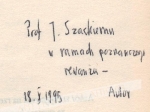 Prof J. Szackiemu
w ramach poznawczego
rewanżu –
Autor
18. I 1995